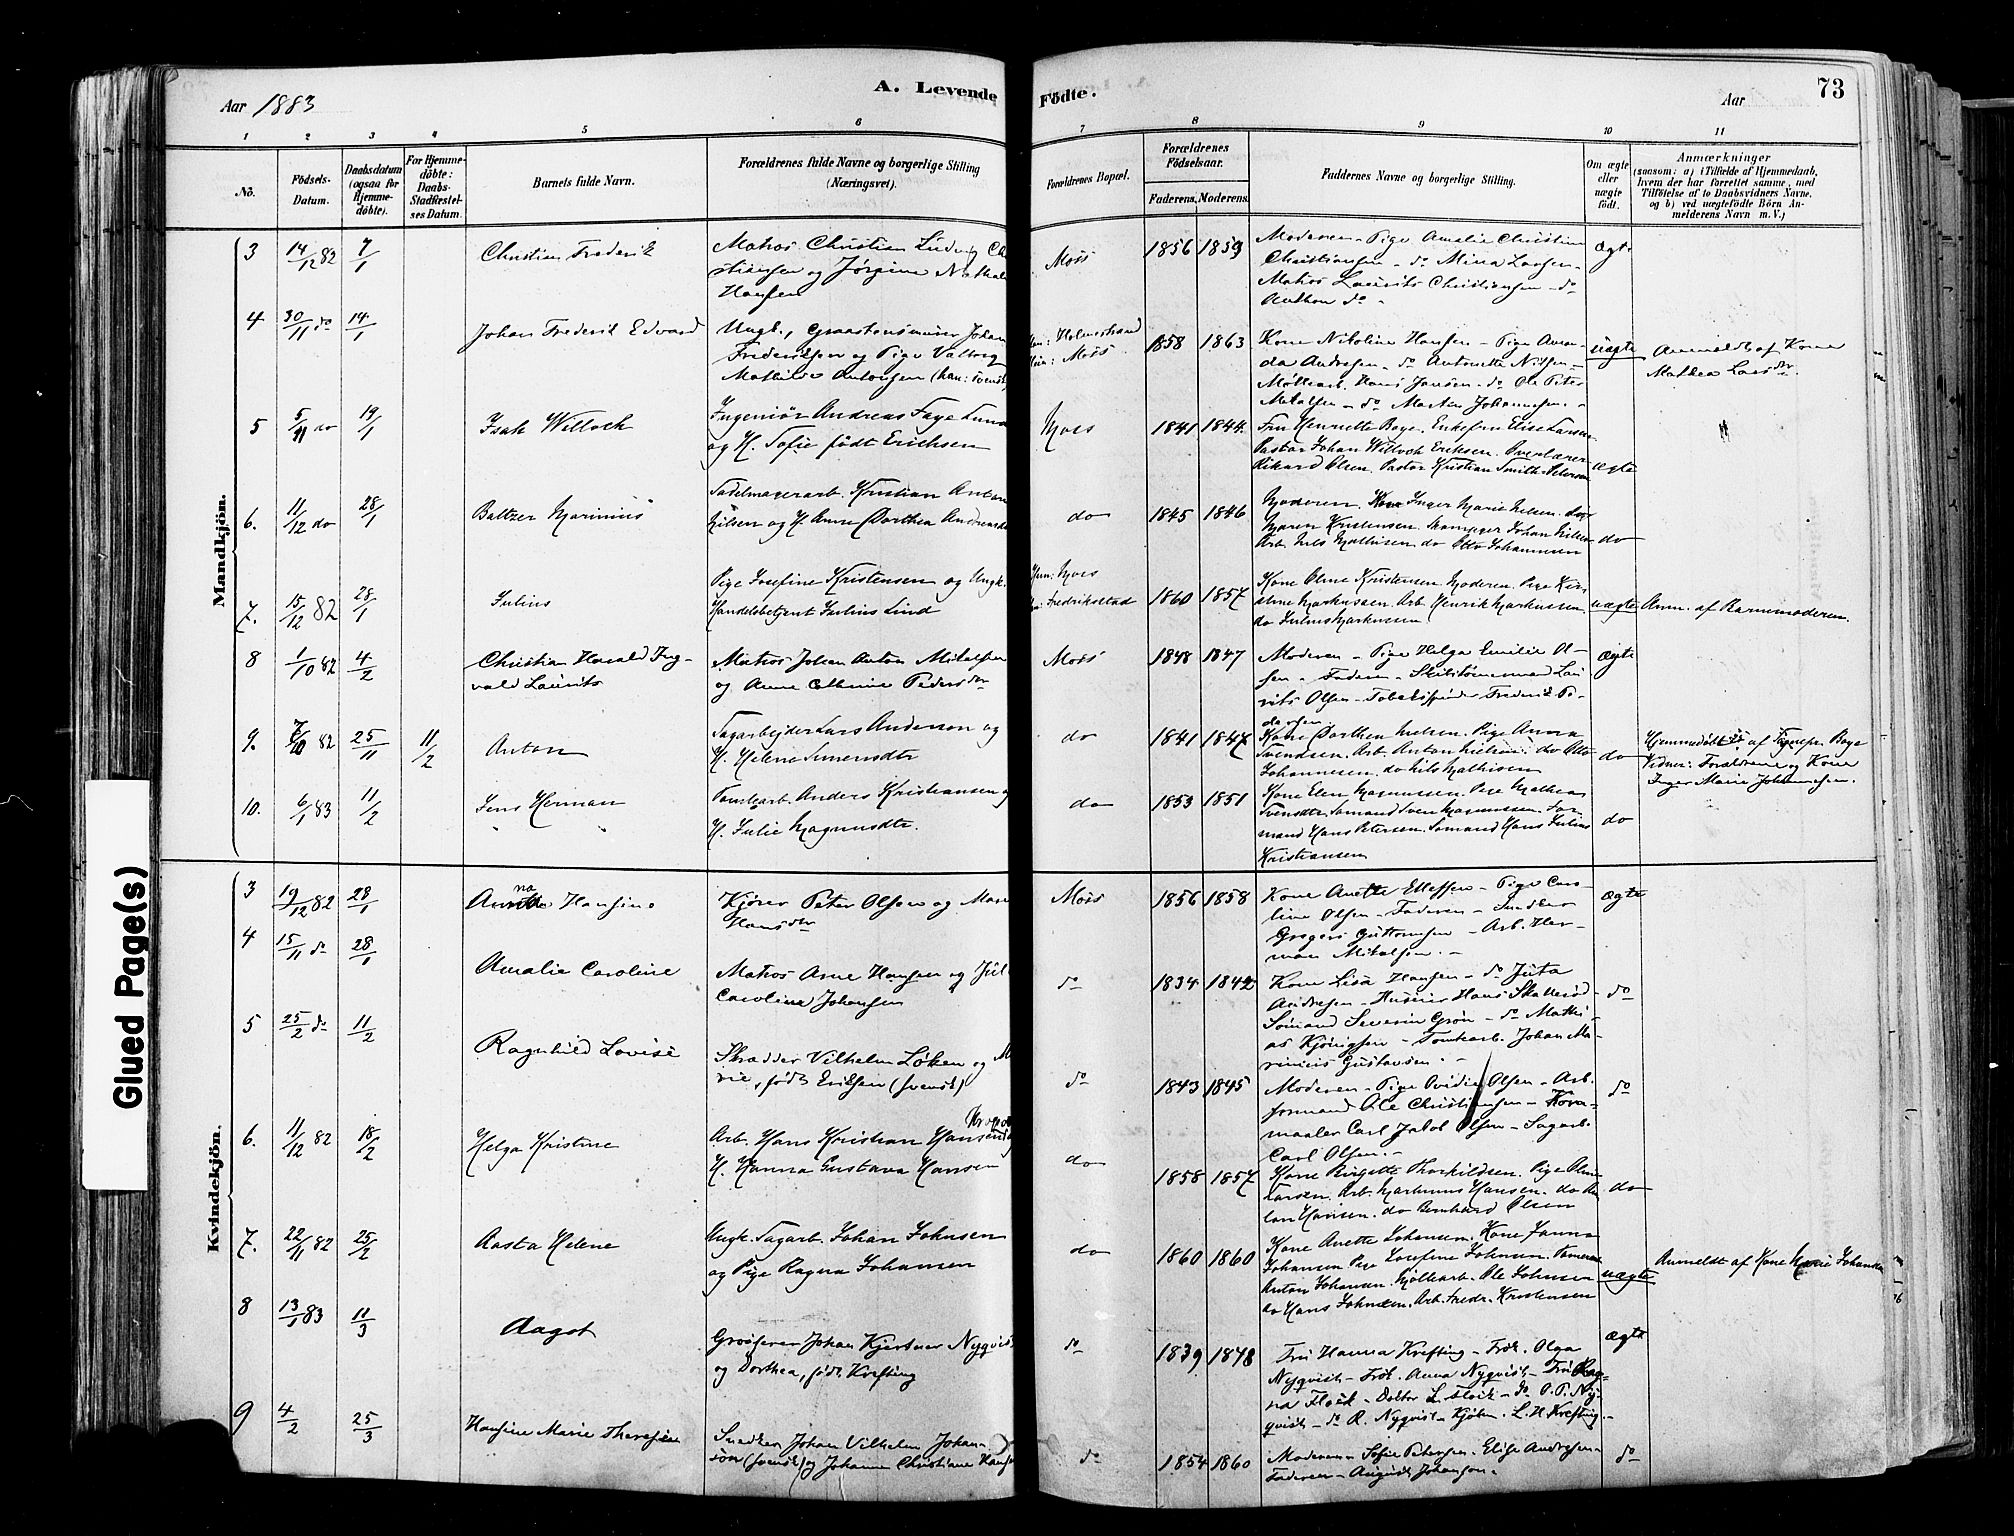 A. Levende Födte.
73
Aar 1883
Aar
1 2 3 4 5 6 7 8 9 10 11
No.
Födsels-Datum.
Daabsdatum (ogsaa for Hjemmedöbte).
For Hjemmedöbte: Daabs-Stadfæstelses Datum.
Barnets fulde Navn.
Forældrenes fulde Navne og borgerlige Stilling (Næringsvei).
Forældrenes Bopæl.
Forældrenes Födselsaar.
Faderens. Moderens.
Faddernes Navne og borgerlige Stilling.
Om ægte eller uægte födt.
Anmærkninger
(saasom: a) i Tilfælde af Hjemmedaab,
hvem der har forrettet samme, med
Tilföielse af to Daabsvidners Navne,
og b) ved uægtefödte Börn Anmelderens Navn m.V.)
Mandkjön.
3 14/12 82 7/1 Christian Frederik
Matros Christian Ludvig Christiansen og Jørgine Hansen
Moss 1856 1859
Moderen - Pige Amalie Christine
Christiansen - do Mina Larsen -
Matros Laurits Christiansen - do
Anthon do -
Ægte
4 30/11 do 14/1 Johan Frederik Edvard
Ungk., Graastensmurer Johan
Frederiksen og Pige Valborg
Mathilde Antonsen (han: svensk)
Han: Holmestrand
Hun: Moss.
1858 1863
Kone Nikoline Hansen - Pige Amanda Andresen - do Antonette Nilsen -
Møllearb. Hans Jansen - do Ole Peter
Mikalsen - do Martin Johannesen. -
uægte
Anmeldt af Kone
Mathea Larsdtr.
5 5/11 do 19/1 Isak Willoch
Ingeniør Andreas Faye Lund
og H. Sofie født Erichsen
Moss 1841 1844
Fru Henriette Boye. Enkefru Elise Larsen
Pastor Johan Willoch Eriksen. Overlærer
Rikard Olsen. Pastor Kristian Smith Petersen
ægte
6. 11/12 do 28/1 Baltzer Marinius
Sadelmagerarb. Kristian Anton
Nilsen og H. Anne Dorthea Andreasdtr
do 1845 1846
Moderen Kone Inger Marie Nelsen. do
Maren Kristensen. Johan Nilsen
Arb. Nils Mathisen do Otto Johannesen
do
7. 15/12 82 28/1 Julius
Pige Josefine Kristensen og Ungk.
Handelsbetjent Julius Lind
Hun: Moss
Han: Fredrikstad
1860 1857
Kone Oline Kristensen Moderen. Pige
Markussen. Arb. Henrik Markussen
do Julius Markussen
uægte
Anm. af Barnemoderen.
8 1/10 82 4/2 Christian Harald Ingvald Laurits
Matros Johan Anton Mikalsen
og Anne Cathrine Pedersdtr
Moss 1848 1847
Moderen - Pige Helga Emilie Olsen - Faderen - Skibstømmermand Laurits Olsen - Tobaksspinder Frederik Pedersen
Ægte
9. 7/10 82 25/11 11/2 Anton
Sagarbejder Lars Anderson og
H. Helene Simensdtr
do 1841 1847
Kone Dorthea Nielsen. Pige Anna
Svendsen. Arb. Anton Nielsen. do Otto
Johannesen. do Nils Mathisen
do
Hjemmedøbt af Sognepr. Boye
Vidner: Forældrene og Kone
Inger Marie Johannesen.
10. 6/1 83 11/2 Jens Herman
Tomtearb. Anders Kristiansen og
H. Julie Magnusdtr.
do 1853 1851
Kone Elen Magnussen. Pige Mathea
Svensdtr. Sømand Sven Magnussen. Formand Hans Petersen. Sømand Hans Julius
Kristiansen
do
Kvindekjön.
3 19/12 82 28/1 Anna Hansine
Kjører Peter Olsen og
Hansdtr
Moss 1856 1858
Kone Anette Ellefsen - Pige Caroline Olsen - Faderen - Snedker
Gregers Guttormsen - Arb. Herman Mikalsen. -
Ægte
4 15/11 do 28/1 Amalie Caroline
Matros Arne Hansen og
Caroline Johansen
do 1834 1842
Kone Lisa Hansen - do Juta
Andresen - Huseier Hans Skallerød -
Sømand Severin Grøn - do Mathias Kjønigsen - Tomtearb. Johan Marinius Gustavsen. -
do
5 25/2 do 11/2 Ragnhild Lovise
Skrædder Vilhelm Løken og Marie, født Eriksen (svensk)
do 1843 1845
Moderen - Pige Ovidia Olsen - Arb.
formand Ole Christiansen -
maaler Carl Jakob Olsen - Sagarb.
Carl Olsen. -
do
6. 11/12 82 18/2 Helga Kristine
Arb. Hans Kristian Hansen
H. Hanna Gustava Hansen
do 1858 1857
Kone Birgitte Thorkildsen. Pige
Larsen. Arb. Martinius Hansen. do
Hansen. do Bernhard Olsen
do
7. 22/11 82 25/2 Aasta Helene
Ungk. Sagarb. Johan Johnsen
og Pige Ragna Johansen
do 1860 1860
Kone Anette Johansen. Kone Janna
Johansen Pige Josefine Johnsen.
Anton Johansen. Møllearb. Ole Johnsen
do Hans Johnsen. Arb. Fredr. Kristensen
uægte
Anmeldt af Kone Marie Johansen
8 13/1 83 11/3 Aagot
Grosserer Johan Kjerstner Nyqvist
og Dorthea, født Krefting
do 1839 1848
Fru Hanna Krefting - Frøk. Olga
Nyqvist - Frøk. Anna Nyqvist - Fru Ragna Fløik - Doktor L. Fløik - do O. P. Nyqvist - do R. Nyqvist - Kjøbm. L. H. Krefting. -
Ægte
9 4/2 25/3 Hansine Marie Theresine
Snedker Johan Vilhelm Johanson (svensk) og Johanne Christiane Hansen
do 1854 1860
Moderen - Sofie Petersen - Elise Andresen -
Faderen - August Johansen -
do
Glued Page(s)